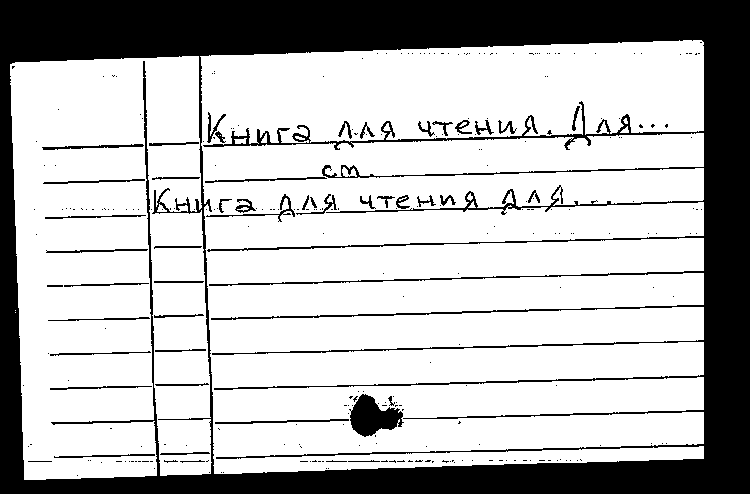 Книга для чтения. Для...
см.
Книга для чтения для...